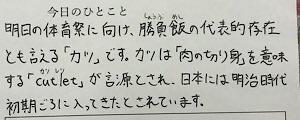 今日のひとこと
明日の体育祭に向け、勝負飯の代表的存在
とも言える「カツ」です。カツは「肉の切り身」を意味
する「cutlet」が言源とされ、日本には明治時代
初期ごろに入ってきたとされています。